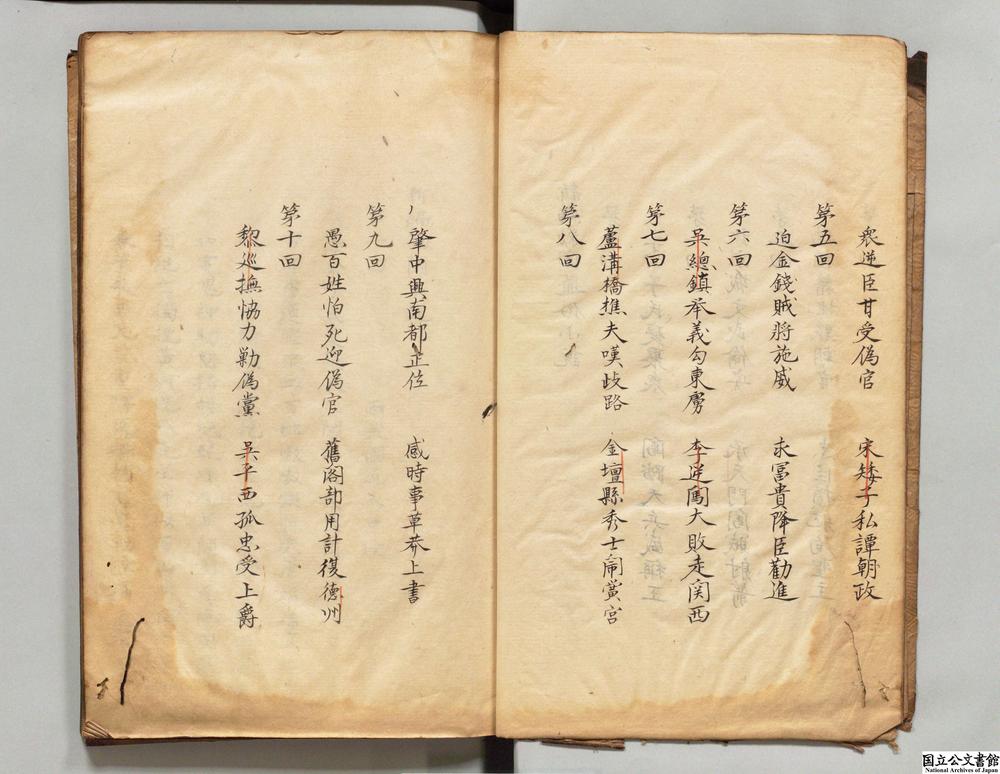 衆逆臣甘受偽官　宋矮子私譚朝政
第五回
迫金錢賊將施威　求冨貴降臣勸進
第六回
吳總鎮举義勾東虜　李逆闖大敗走関西
第七回
蘆溝橋樵夫嘆歧路　金壇縣秀士鬧黌宮
第八回
肇中興南都正位　感時事草莽上書
第九回
愚百姓怕死迎偽官　舊閣部用計復德州
第十回
黎巡撫恊力勦偽黨　吳平西孤忠受上爵
国立公文書館
National Archives of Japan